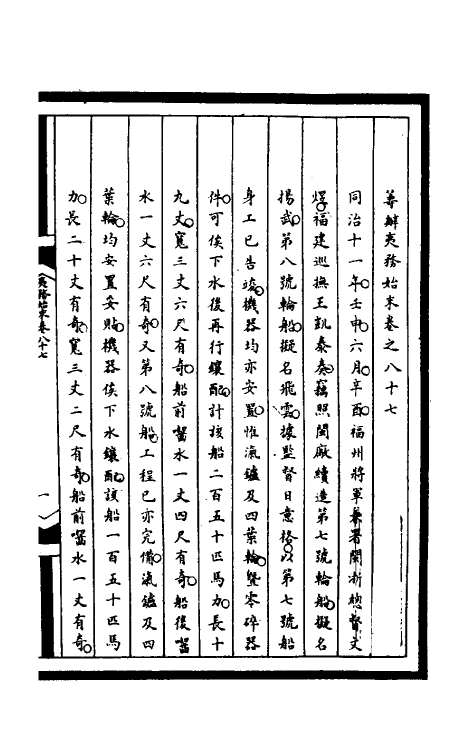 籌辦夷務始末卷之八十七
同治十一年壬申六月辛酉福州將軍兼署閩浙總督文
煜福建巡撫王凱泰奏竊照閩廠續造第七號輪船擬名
揚武第八號輪船擬名飛雲據監督日意格以第七號船
身工已告竣機器均亦安置惟滊鑪及四葉輪曁零碎器
件可俟下水後再行鑲配計該船二百五十匹馬力長十
九丈寬三丈六尺有奇船前𠹌水一丈四尺有奇船後𠹌
水一丈六尺有奇又第八號船工程已亦完備滊鑪及四
葉輪均安置妥貼機器俟下水鑲配該船一百五十匹馬
力長二十丈有奇寬三丈二尺有奇船前𠹌水一丈有奇
夷務始末卷八十七
一